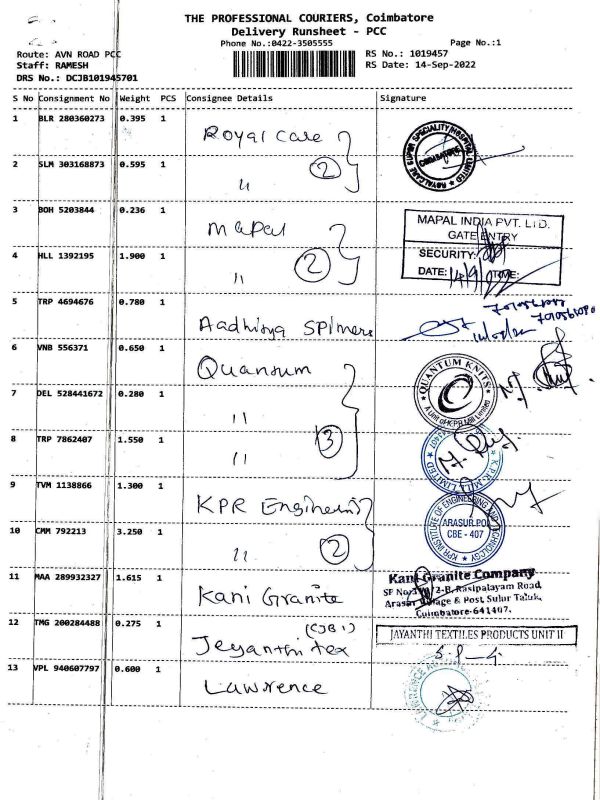 THE PROFESSIONAL COURIERS, Coimbatore
Delivery Runsheet - PCC
Phone No.:0422-3505555 Page No.:1
Route: AVN ROAD PCC RS No.: 1019457
Staff: RAMESH RS Date: 14-Sep-2022
DRS No.: DCJB101945701
S No Consignment No Weight PCS Consignee Details Signature
1 BLR 280360273 0.395 1 Royal Care
2 SLM 303168873 0.595 1 〃 2
ROYALCARE SUPER SPECIALITY HOSPITAL LIMITED
COIMBATORE
3 BOH 5203844 0.236 1 Mapal
4 HLL 1392195 1.900 1 〃 2
MAPAL INDIA PVT. LTD.
GATE ENTRY
SECURITY:
DATE: 14/9/22 TIME:
5 TRP 4694676 0.780 1 Aadhisya SPinners
6 VNB 556371 0.650 1 Quantum
7 DEL 528441672 0.280 1 〃
8 TRP 7862407 1.550 1 〃 3
QUANTUM KNITS
A Unit of KPR Mill Limited
K.P.R. MILL LIMITED
9 TVM 1138866 1.300 1 KPR Engineering
10 CMM 792213 3.250 1 〃 2
KPR INSTITUTE OF ENGINEERING AND TECHNOLOGY
ARASUR.PO
CBE - 407
11 MAA 289932327 1.615 1 Kani Granite
Kani Granite Company
2-B, Rasipalayam Road
Arasur Village & Post, Sulur Taluk,
Coimbatore-641407.
12 TMG 200284488 0.275 1 (CJB 1)
Jeyanthi tex
JAYANTHI TEXTILES PRODUCTS UNIT II
13 VPL 940607797 0.600 1 Lawrence
LAWRENCE